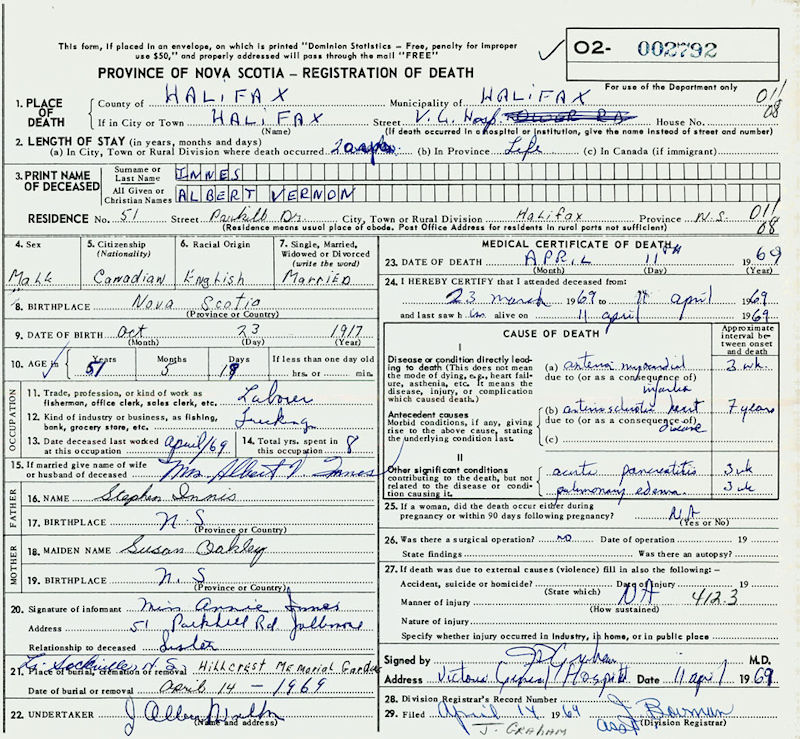 This form, if placed in an envelope, on which is printed "Dominion Statistics – Free, penalty for improper
use $50," and properly addressed will pass through the mail "FREE"
O2- 002792
PROVINCE OF NOVA SCOTIA – REGISTRATION OF DEATH
For use of the Department only
1. PLACE OF DEATH County of HALIFAX Municipality of HALIFAX 011
If in City or Town HALIFAX Street V. G. Hosp. House No. 08
(Name) (If death occurred in a hospital or institution, give the name instead of street and number)
2. LENGTH OF STAY (in years, months and days)
(a) In City, Town or Rural Division where death occurred (b) In Province Life (c) In Canada (if immigrant)
3. PRINT NAME OF DECEASED Surname or Last Name INNES
All Given or Christian Names ALBERT VERNON
RESIDENCE No. 51 Street Parkhill Dr. City, Town or Rural Division Halifax Province N.S. 011
(Residence means usual place of abode. Post Office Address for residents in rural parts not sufficient) 08
4. Sex 5. Citizenship (Nationality) 6. Racial Origin 7. Single, Married, Widowed or Divorced (write the word)
Male Canadian English Married
8. BIRTHPLACE Nova Scotia
(Province or Country)
9. DATE OF BIRTH Oct 23 1917
(Month) (Day) (Year)
10. AGE Years Months Days If less than one day old
51 5 19 hrs. or min.
OCCUPATION
11. Trade, profession, or kind of work as fisherman, office clerk, sales clerk, etc. Labourer
12. Kind of industry or business, as fishing, bank, grocery store, etc. Trucking
13. Date deceased last worked at this occupation April/69 14. Total yrs. spent in this occupation 8
15. If married give name of wife or husband of deceased Mrs Albert V. Innes
FATHER
16. NAME Stephen Innis
17. BIRTHPLACE N.S
(Province or Country)
MOTHER
18. MAIDEN NAME Susan Oakley
19. BIRTHPLACE N.S.
(Province or Country)
20. Signature of informant Miss Annie Innes
Address 51 Parkhill Rd. Jollimore
Relationship to deceased Sister
Lr Sackville N.S. Hillcrest Memorial Gardens
21. Place of burial, cremation or removal
Date of burial or removal April 14 – 1969
22. UNDERTAKER J Albert Walker
(Name and address)
MEDICAL CERTIFICATE OF DEATH
23. DATE OF DEATH APRIL 11TH 1969
(Month) (Day) (Year)
24. I HEREBY CERTIFY that I attended deceased from:
23 March 1969 to 11 April 1969
and last saw him alive on 11 April 1969
CAUSE OF DEATH Approximate interval between onset and death
I
Disease or condition directly leading to death (This does not mean the mode of dying, e.g., heart failure, asthenia, etc. It means the disease, injury, or complication which caused death.)
(a) myocardial 3 wk.
due to (or as a consequence of)
Antecedent causes
Morbid conditions, if any, giving rise to the above cause, stating the underlying condition last.
(b) arteriosclerotic heart disease 7 years
due to (or as a consequence of)
(c)
II
Other significant conditions contributing to the death, but not related to the disease or condition causing it.
acute pancreatitis 3 wk
pulmonary edema 3 wk
25. If a woman, did the death occur either during pregnancy or within 90 days following pregnancy? NA
(Yes or No)
26. Was there a surgical operation? no Date of operation 19
State findings Was there an autopsy?
27. If death was due to external causes (violence) fill in also the following:–
Accident, suicide or homicide? Date of injury 19
(State which)
Manner of injury NA 412.3
(How sustained)
Nature of injury
Specify whether injury occurred in industry, in home, or in public place
Signed by J Graham M.D.
Address Victoria General Hospital Date 11 April 1969
28. Division Registrar's Record Number
29. Filed April 14 1969 J Bowman
J. GRAHAM asst (Division Registrar)